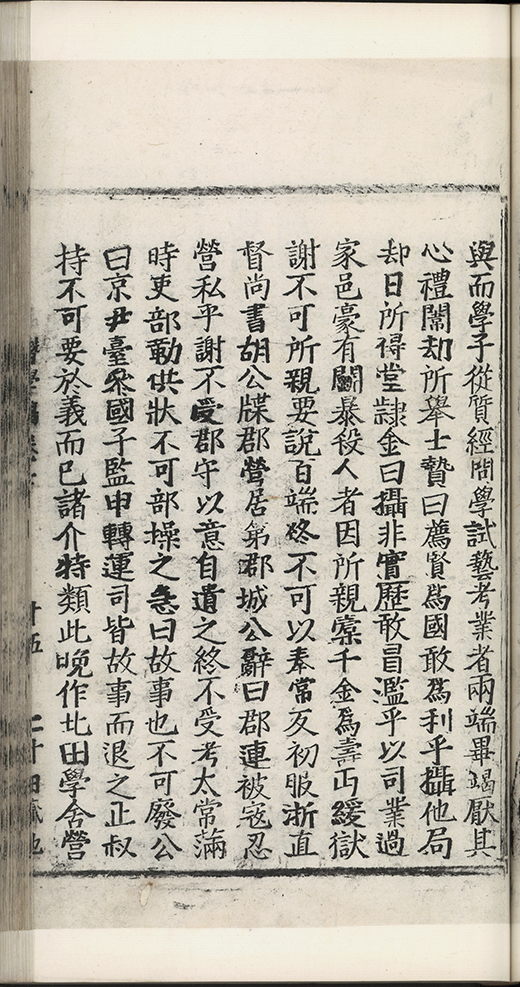 與而學子從質經問學試藝考業者兩端畢竭厭其
心禮闈却所舉士贄曰薦賢爲國敢爲利乎攝他局
却日所得堂隷金曰攝非實歷敢冒濫乎以司業過
家邑豪有鬬暴役人者因所親槖千金爲壽丐緩獄
謝不可所親要說百端終不可以奉常友初服浙直
督尚書胡公牒郡營居第郡城公辭曰郡連被寇忍
營私乎謝不受郡守以意自遺之終不受考太常滿
時吏部勒供狀不可部操之急曰故事也不可廢公
曰京尹臺衆國子監申轉運司皆故事而退之止叔
持不可要於義而已諸介特類此晚作北田學舍營
廿五